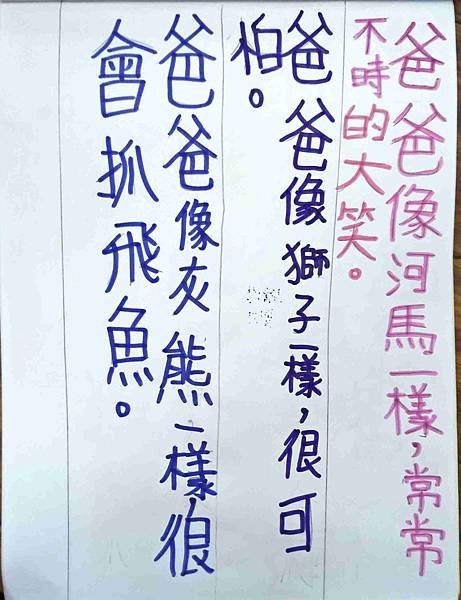 爸爸像河馬一樣，常常
不時的大笑。
爸爸像獅子一樣，很可
怕。
爸爸像灰熊一樣，很
會抓飛魚。